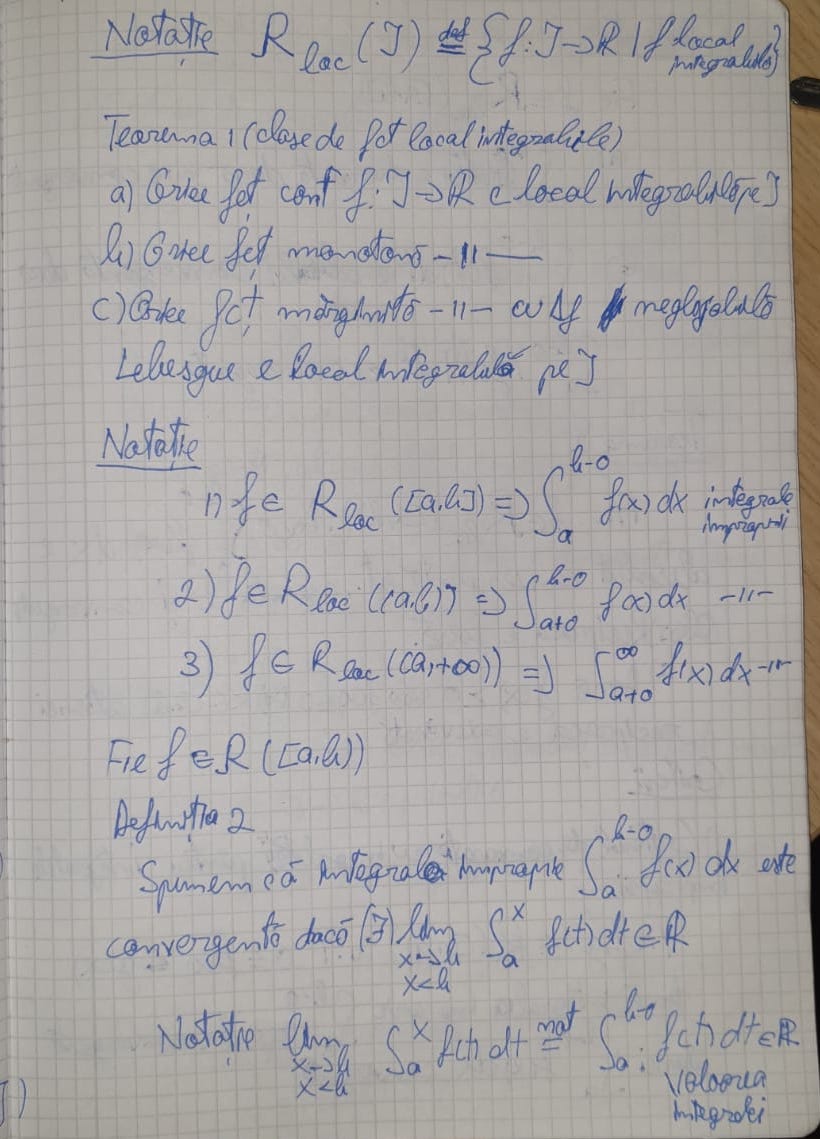 Notație R_loc(J) =^def {f: J→R | f local integrabilă}
Teorema 1 (clase de fct local integrabile)
a) Orice fct cont f: J→R e local integrabilă pe J
b) Orice fct monotonă -11-
c) Orice fct mărginită -11- cu Δf neglijabilă
Lebesgue e local integrabilă pe J
Notație
1) f ∈ R_loc([a,b]) => ∫_a^{b-0} f(x) dx integrale improprii
2) f ∈ R_loc((a,b)) => ∫_{a+0}^{b-0} f(x) dx -11-
3) f ∈ R_loc((a,+∞)) => ∫_{a+0}^∞ f(x) dx -11-
Fie f ∈ R([a,b))
Definiția 2
Spunem că integrala improprie ∫_a^{b-0} f(x) dx este
convergentă dacă (∃) lim_{x→b, x<b} ∫_a^x f(t) dt ∈ R
Notație lim_{x→b, x<b} ∫_a^x f(t) dt =^not ∫_a^{b-0} f(t) dt ∈ R
valoarea
integralei